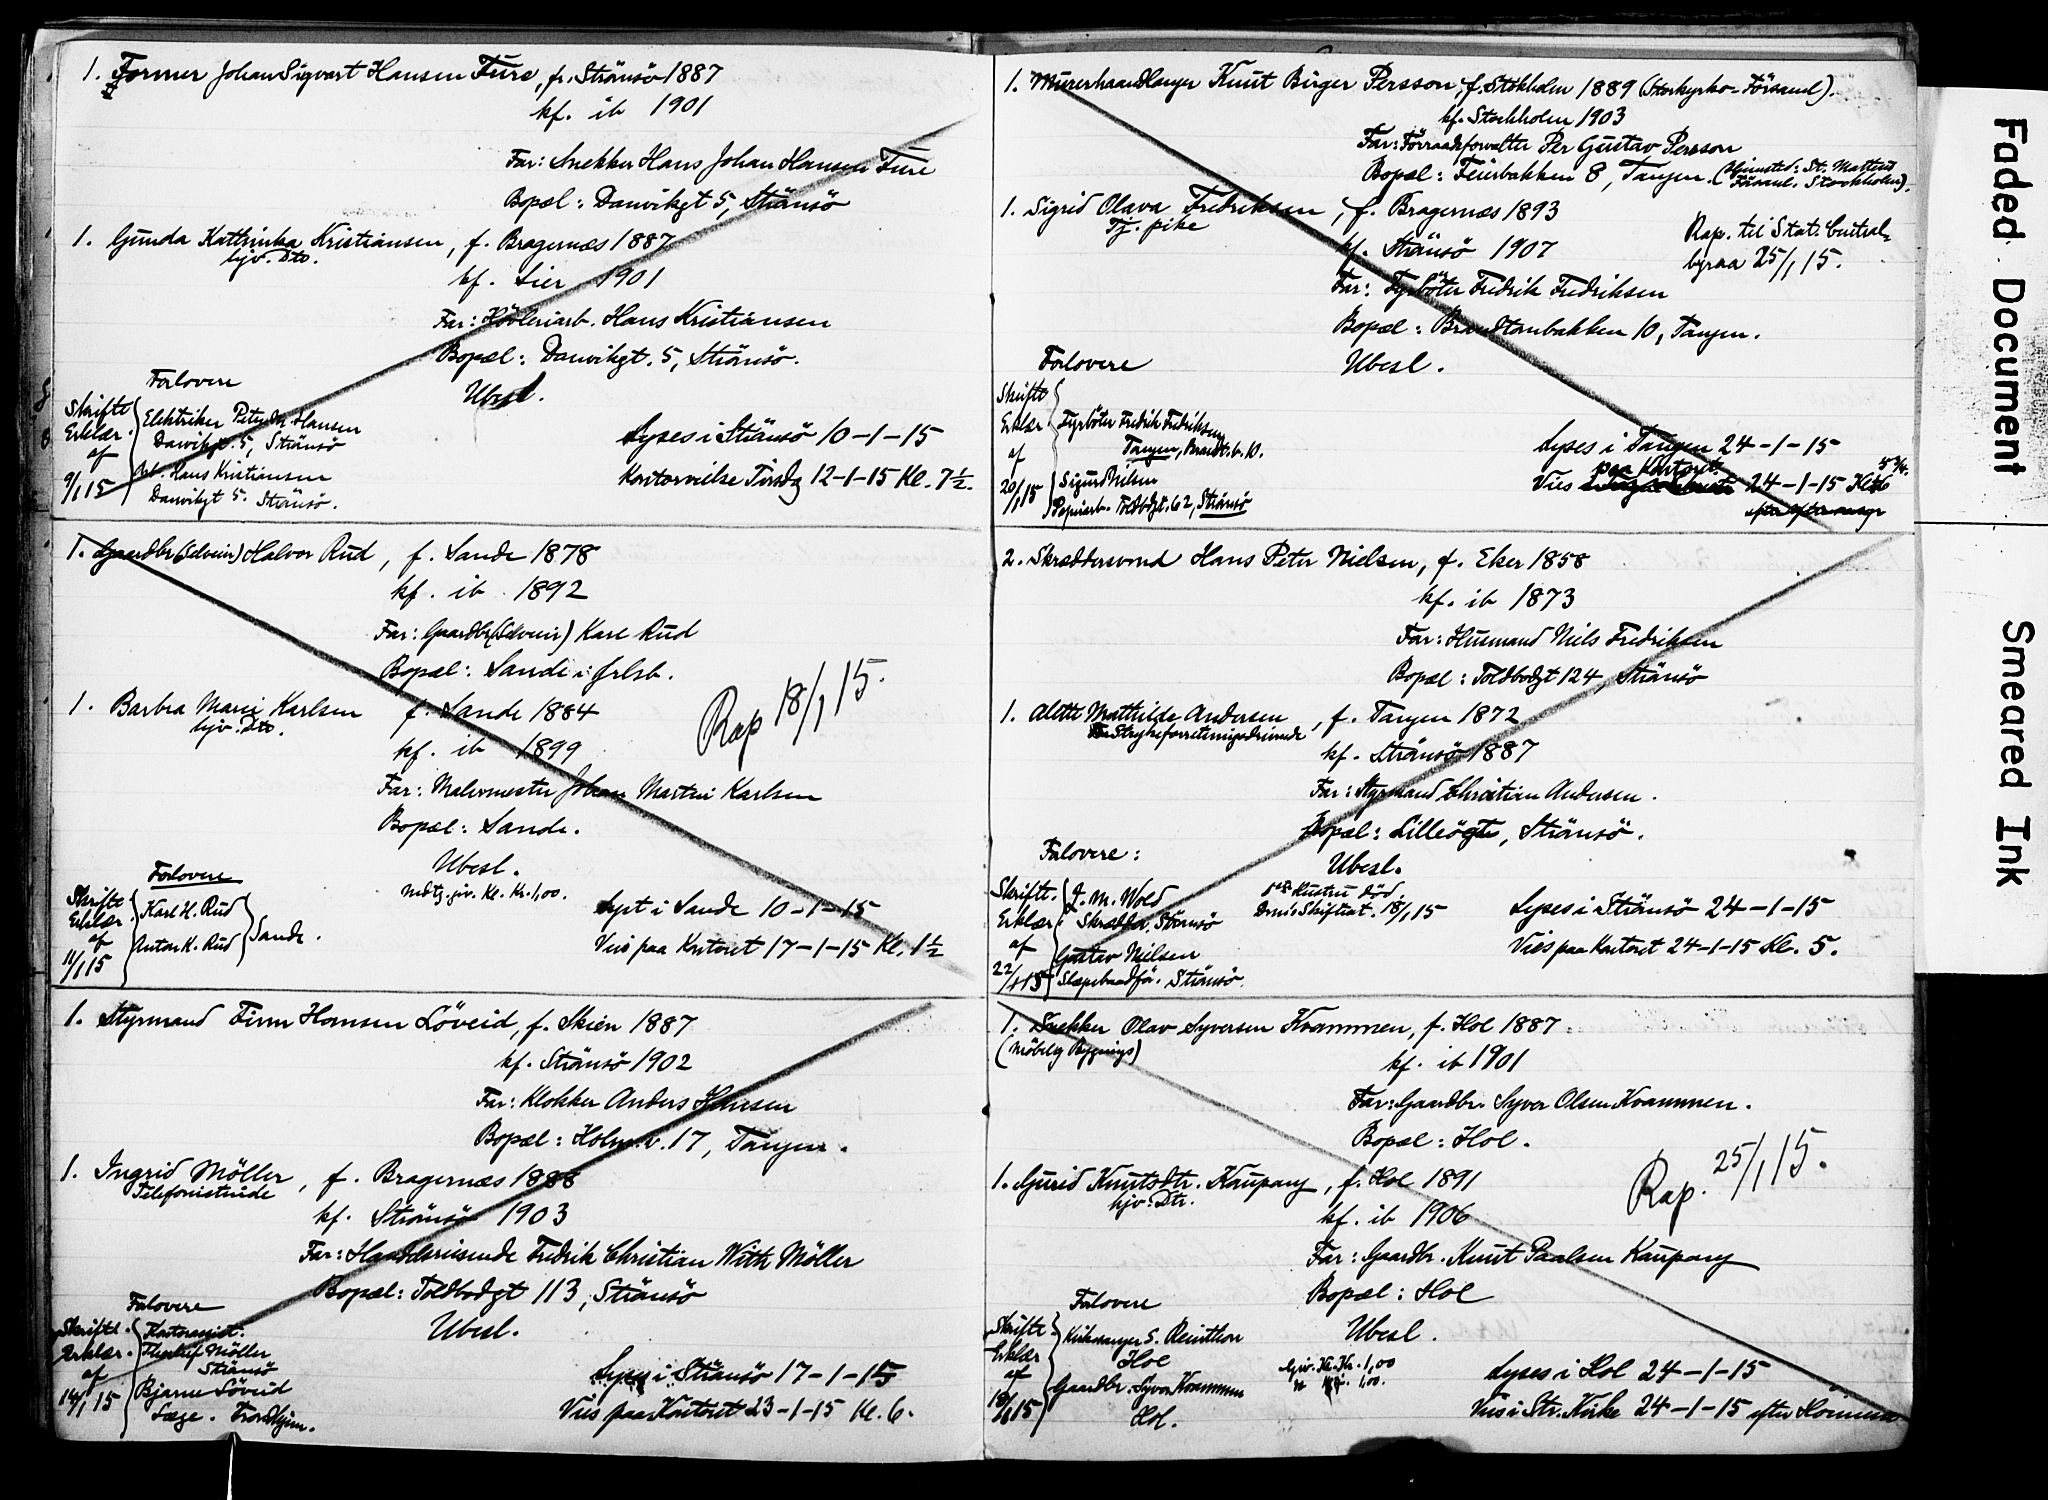 1. Former Johan Sigvart Hansen Fure, f. Strömsö 1887
kf. ib 1901
Far: Snekker Hans Johan Hansen Fure
Bopæl: Danvikgt 5, Strömsö
1. Gunda Kathinka Kristiansen, f. Bragernæs 1887
hjv. Dtr.
kf. Lier 1901
Far: Høvleriarb. Hans Kristiansen
Bopæl: Danvikgt. 5, Strömsö.
Forlovere
Ubesl.
Skriftl. Erklær. af 9/1 15
Elektriker Peter M. Hansen
Danvikgt. 5, Strömsö
Arb. Hans Kristiansen
Danvikgt 5. Strömsö.
Lyses i Strömsö 10-1-15
Kontorvielse Tirsdg 12-1-15 Kl. 7½.
1. Gaardbr. (Selveier) Halvor Rud, f. Sande 1878
kf. ib 1892
Far: Gaardbr. (Selveier) Karl Rud
Bopæl: Sande i Jrlsb.
Rap 18/1 15.
1. Barbra Marie Karlsen f. Sande 1884
hjv. Dtr.
kf. ib 1899
Far: Malermester Johan Martin Karlsen
Bopæl: Sande.
Ubesl.
Forlovere
Modtg. giv. Kl. Kr. 1,00.
Skriftl. Erklær. af 11/1 15
Karl H. Rud
Anton K. Rud
Sande.
Lyst i Sande 10-1-15
Vies paa Kontoret 17-1-15 Kl. 1½
1. Styrmand Finn Hansen Löveid, f. Skien 1887
kf. Strömsö 1902
Far: Klokker Anders Hansen
Bopæl: Holm. v. 17, Tangen.
1. Ingrid Möller, f. Bragernæs 1888
Telefonistinde
kf. Strömsö 1903
Far: Handelsreisende Fredrik Christian With Möller
Bopæl: Toldbodgt 113, Strömsö
Forlovere
Ubesl.
Skriftl. Erklær. af 14/1 15
Kontorassist.
Möller
Strömsö
Bjarne Löveid
Læge. Trondhjem.
Lyses i Strömsö 17-1-15
Vies paa Kontoret 23-1-15 Kl. 6.
1. Murerhaandlanger Knut Birger Persson, f. Stokholm 1889 (Storkyrko-Församl).
kf. Stockholm 1903
Far: Förraadsforvalter Per Gustav Persson
Bopæl: Feierbakken 8, Tangen. (Hjemsted: St. Matteus
Församl. Stockholm).
1. Sigrid Olava Fredriksen, f. Bragernæs 1893
Tj. pike
kf. Strömsö 1907
Rap. til Stat. Central-
byraa 25/1 15.
Far: Fyrböter Fredrik Fredriksen
Bopæl: Brandtenbakken 10, Tangen.
Forlovere
Ubesl.
Skriftl. Erklær af 20/1 15
Fyrböter Fredrik Fredriksen
Tangen, Brandt. b. 10.
Sigurd Nilsen
Papirarb. Toldbodgt. 62, Strömsö
Lyses i Tangen 24-1-15
paa Kontoret
Vies 24-1-15 Kl. 5¾.
2. Skræddersvend Hans Peter Nielsen, f. Eker 1858
kf. ib 1873
Far: Husmand Niels Fredriksen
Bopæl: Toldbodgt 124, Strömsö
1. Alette Mathilde Andersen, f. Tangen 1872
Strykeforretningsdrivende
kf. Strömsö 1887
Far: Styrmand Christian Andersen.
Bopæl: Lilleögt, Strömsö.
Forlovere:
Ubesl.
Skriftl. Erklær af 22/1 15
J. M. Wold
Skrædder, Strömsö
Gustav Nielsen
Slæpebaadför. Strömsö.
1ste Hustru död
Drms Skifteat. 18/1 15
Lyses i Strömsö 24-1-15
Vies paa Kontoret 24-1-15 Kl. 5.
1. Snekker Olav Syversen Kvammen, f. Hol 1887
(Möbel og Bygnings)
kf. ib 1901
Far: Gaardbr. Syver Olsen Kvammen.
Bopæl: Hol.
1. Gurid Knutsdtr. Kaupang, f. Hol 1891
hjv. Dtr.
kf. ib 1906
Rap. 25/1 15.
Far: Gaardbr. Knut Paalsen Kaupang
Bopæl: Hol
Forlovere
Ubesl.
Skriftl. Erklær af 18/1 15
Kirkesanger S. Reinton
Hol
Gaardbr. Syver Kvammen
Hol.
Giv. Kl. Kr. 1,00
1,00.
Lyses i Hol 24-1-15
Vies i Str. Kirke 24-1-15 efter Höimesse
Faded Document
Smeared Ink